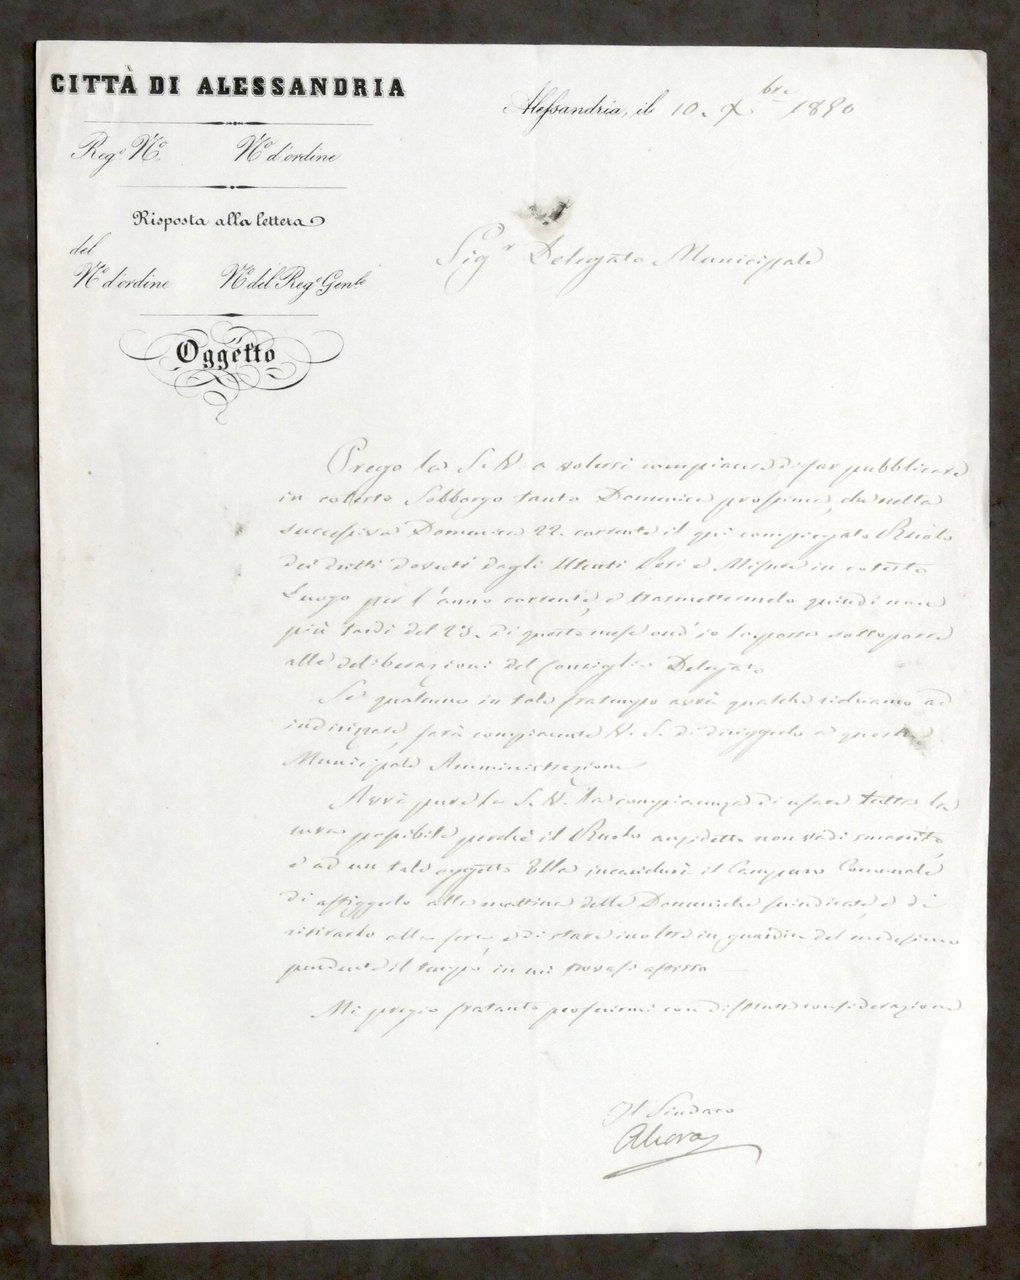 CITTÀ DI ALESSANDRIA
Alessandria, il 10. Xbre 1850
Rego No. No d'ordine
Risposta alla lettera
del
No d'ordine No del Rego Genle
Oggetto
Sigr Delegato Municipale
Prego la S. V. a volersi compiacere di far pubblicare
in cotesto Sobborgo tanto Domenica prossima, che nella
successiva Domenica 22. corrente il qui compiegato Ruolo
dei dritti dovuti dagli Utenti Pesi e Misure in cotesto
Luogo per l'anno corrente, e trasmettermelo quindi non
più tardi del 23. di questo mese ond'io lo possa sottoporre
alle deliberazioni del Consiglio Delegato
Se qualcuno in tale fratempo avrà qualche richiamo ad
indirizzare, sarà compiacente V. S. di diriggerlo a questa
Municipale Amministrazione
Avrà pure la S. V. la compiacenza di usare tutta la
cura possibile perchè il Ruolo anzidetto non vadi smarrito,
e ad un tale oggetto Ella incaricherà il Camparo Comunale
di affiggerlo alla mattina delle Domeniche suindicate, e di
ritirarlo alla sera, e di stare inoltre in guardia del medesimo
pendente il tempo in cui trovasi affisso
Mi pregio fratanto proferirmi con distinta considerazione
Il Sindaco